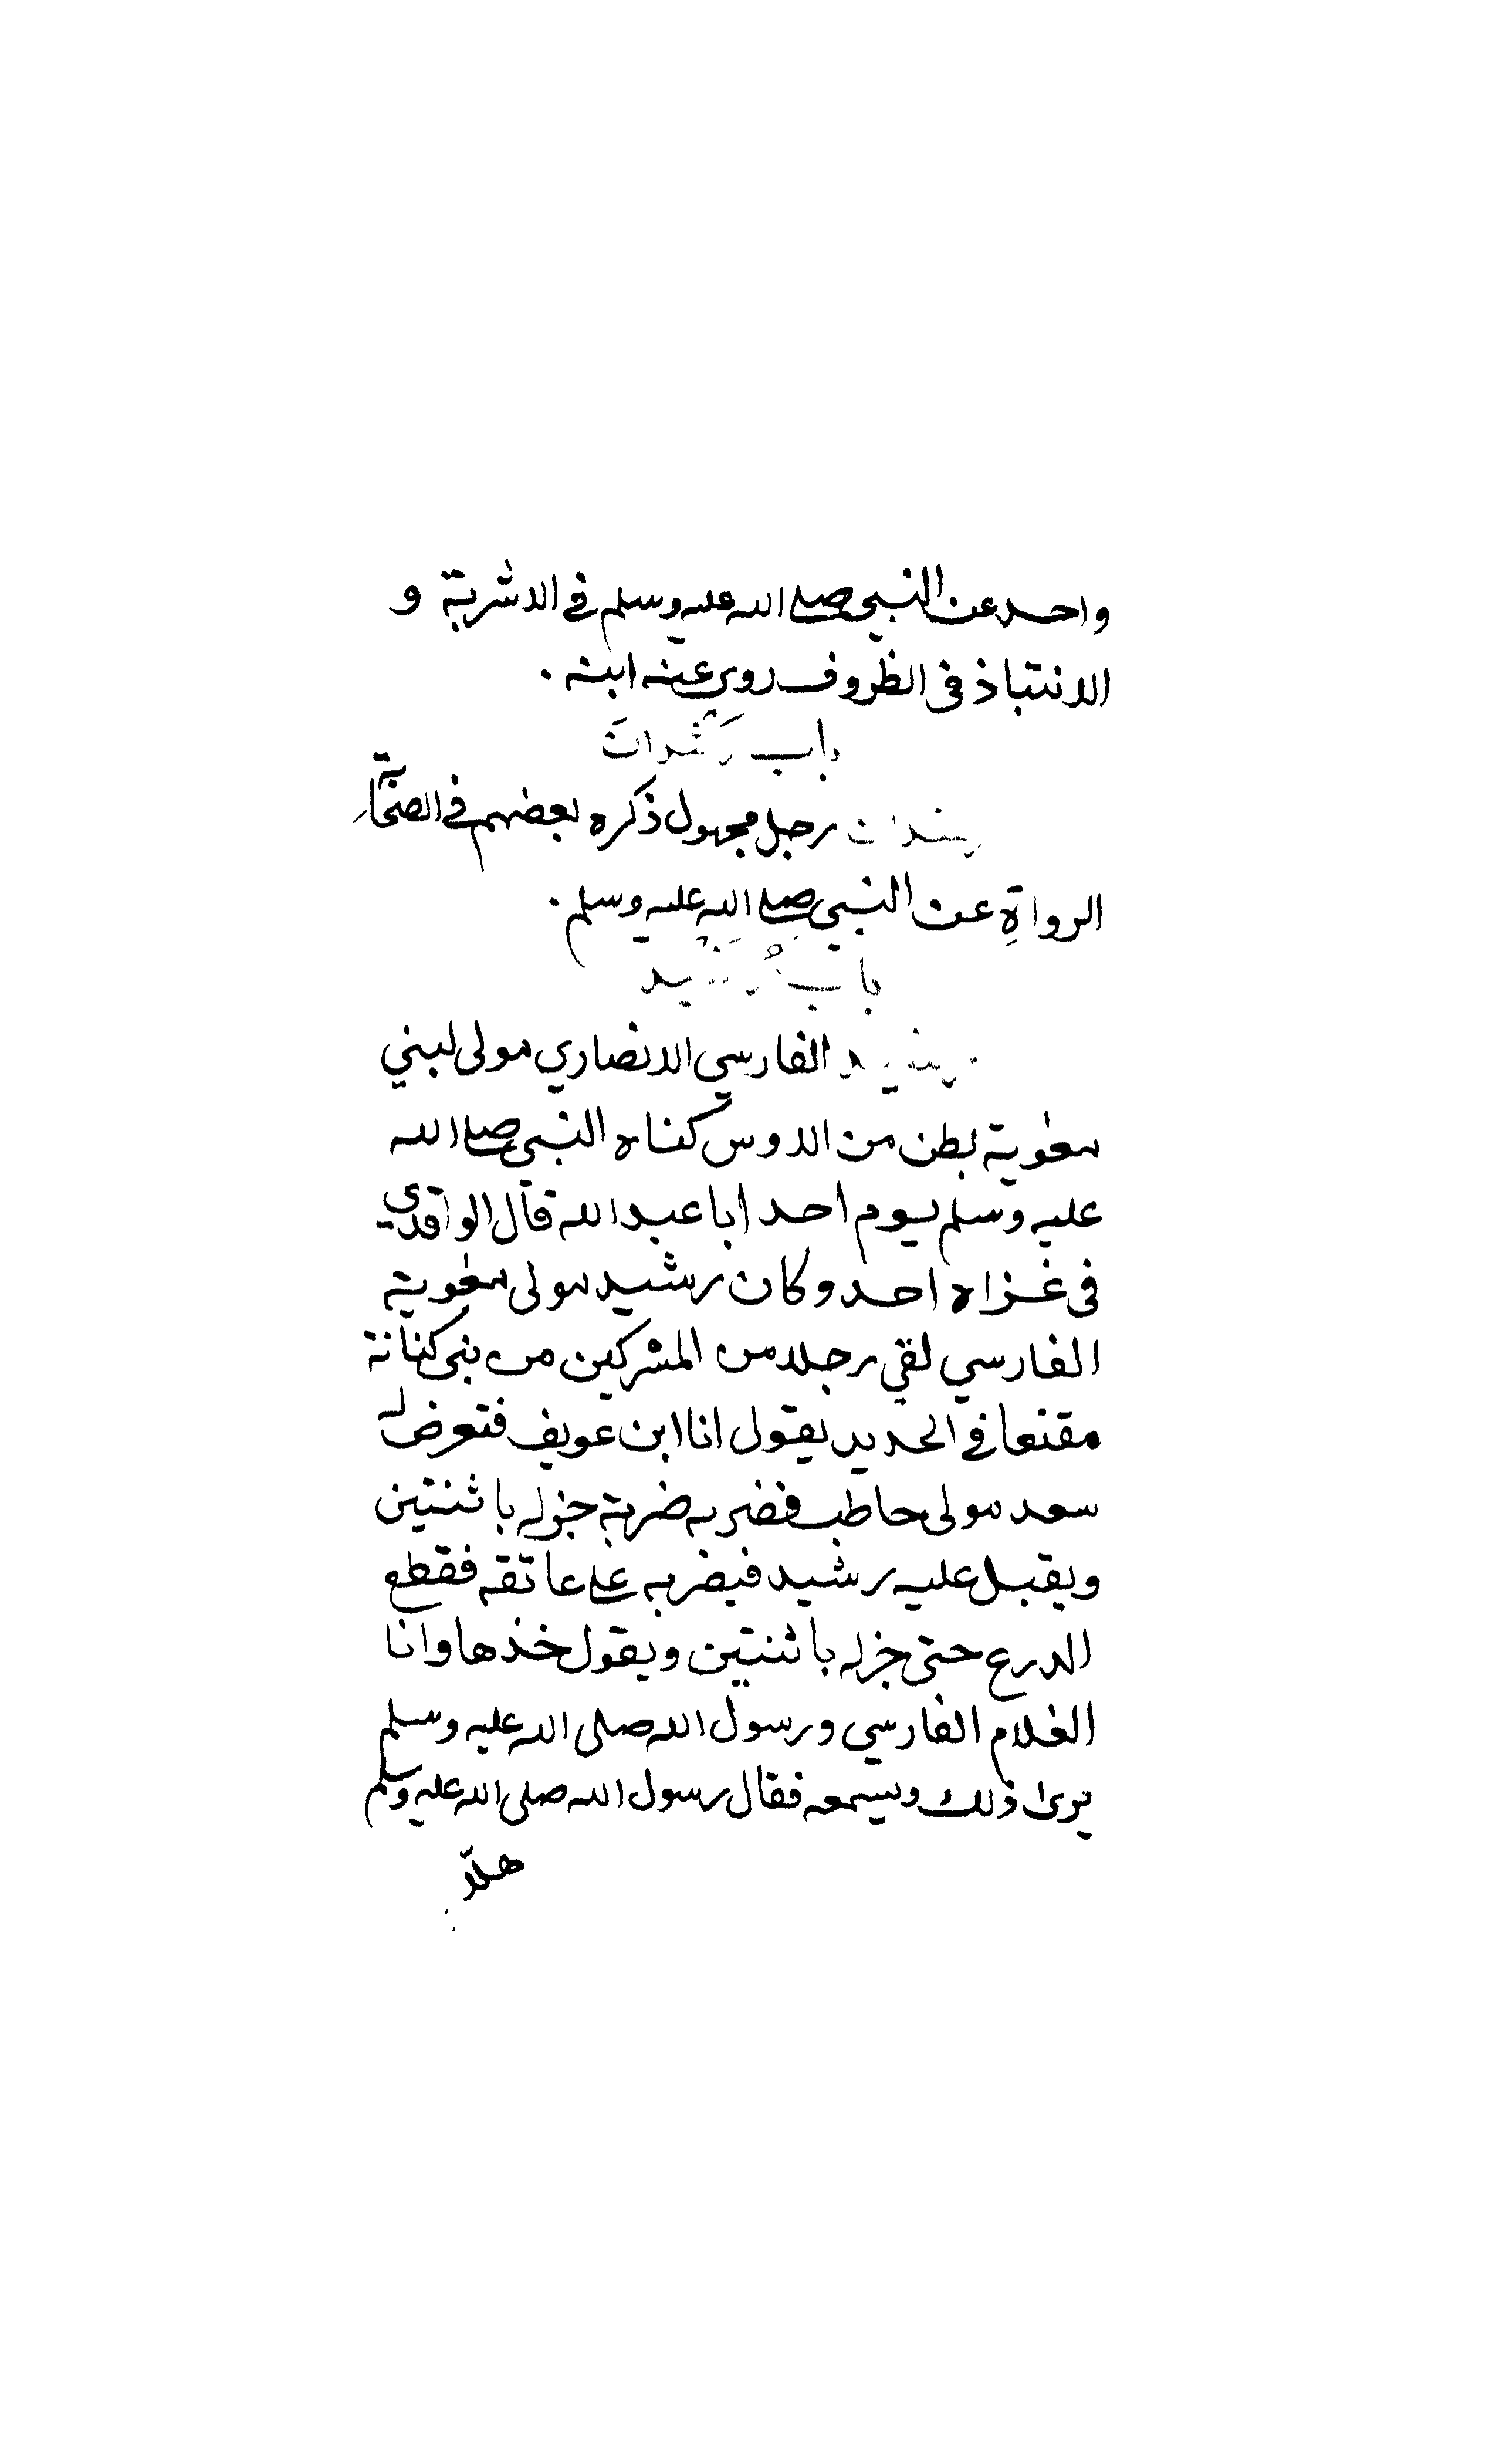 واحد عن النبي صلے الله عليه وسلم في الاشربة و
الانتباذ فى الظروف روى عنه ابنه .
باب رَشْدان
رشدان رجل مجهول ذكره بعضهم في الصحابة
الرواةِ عن النبي صلے الله عليه وسلم .
باب رُشَيْد
رشيد الفارسي الانصاري مولى لبني
معٰوية بطن من الاوس كناه النبي صلے الله
عليه وسلم يوم احد ابا عبد الله قال الواقدي
فى غزاه احد وكان رشيد مولى معٰوية
الفارسي لقي رجلا من المشركين من بنى كنانة
مقنعا في الحديد يقول انا ابن عويف فتعرض له
سعد مولى حاطب فضربه ضربة جزله باثنتين
ويقبل عليه رشيد فيضربه علے عاتقه فقطع
الدرع حتى جزله باثنتين ويقول خذها وانا
الغلام الفارسي ورسول الله صلى الله عليه وسلم
يرى ذلك ويسمعه فقال رسول الله صلى الله عليه وسلم
هلّا